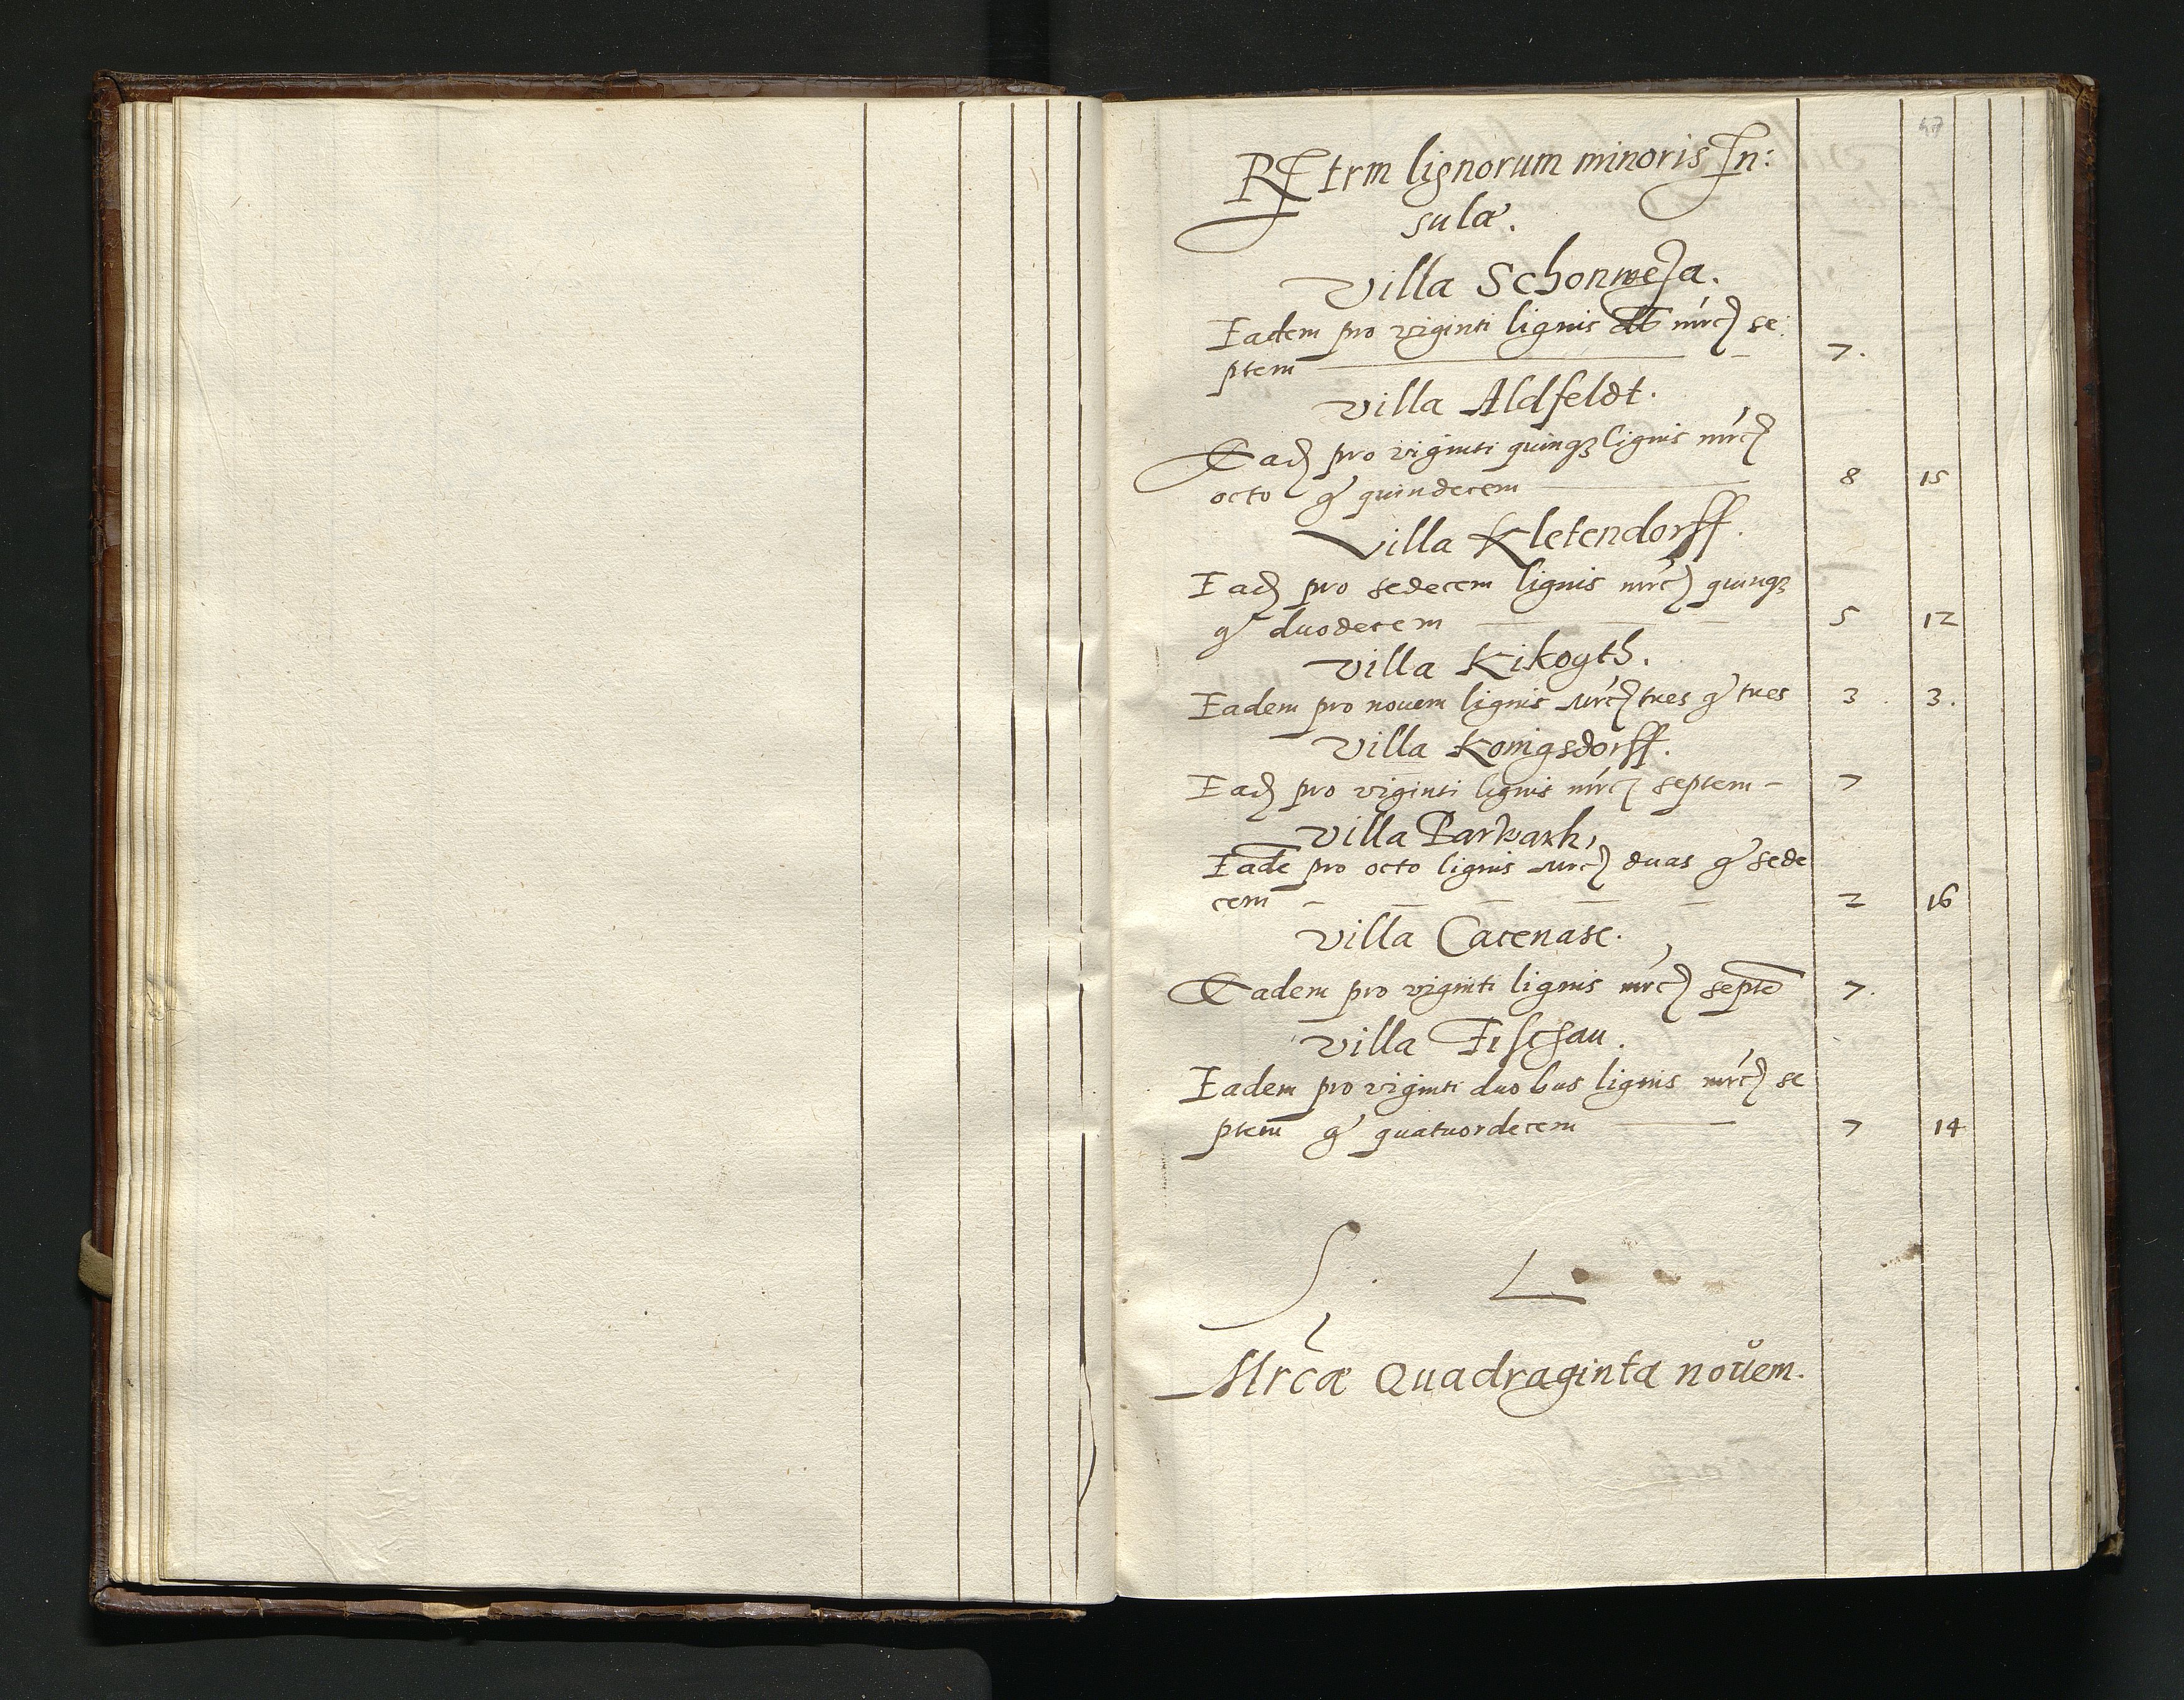 47
REtrm lignorum minoris In:
sulæ.
Villa Schonwesa.
Eadem pro viginti lignis dt mrc se:
ptem 7.
Villa Aldfeldt.
Ead pro viginti quinqz lignis mrc
octo g quindecem 8 15
Villa Kletendorff.
Ead pro sedecem lignis mrc quinqz
g duodecem 5 12
Villa Kikogth.
Eadem pro nouem lignis mrc tres g tres 3 3.
Villa Konigsdorff.
Ead pro viginti lignis mrc septem 7
Villa Barwark,
Eadē pro octo lignis mrc duas g sede
cem 2 16
Villa Cacenase.
Eadem pro viginti lignis mrc septē 7.
Villa Fischau.
Eadem pro viginti duobus lignis mrc se
ptem g quatuordecem 7 14
S. L
Mrcæ Quadraginta nouem.